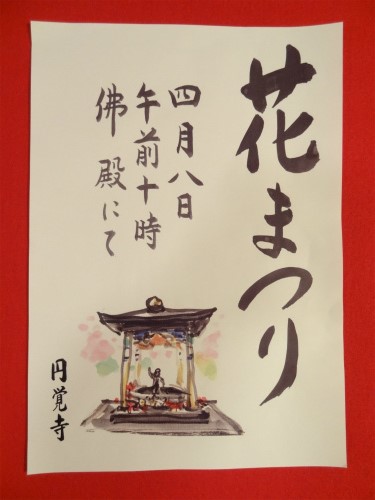 花まつり
四月八日
午前十時
佛殿にて
円覚寺